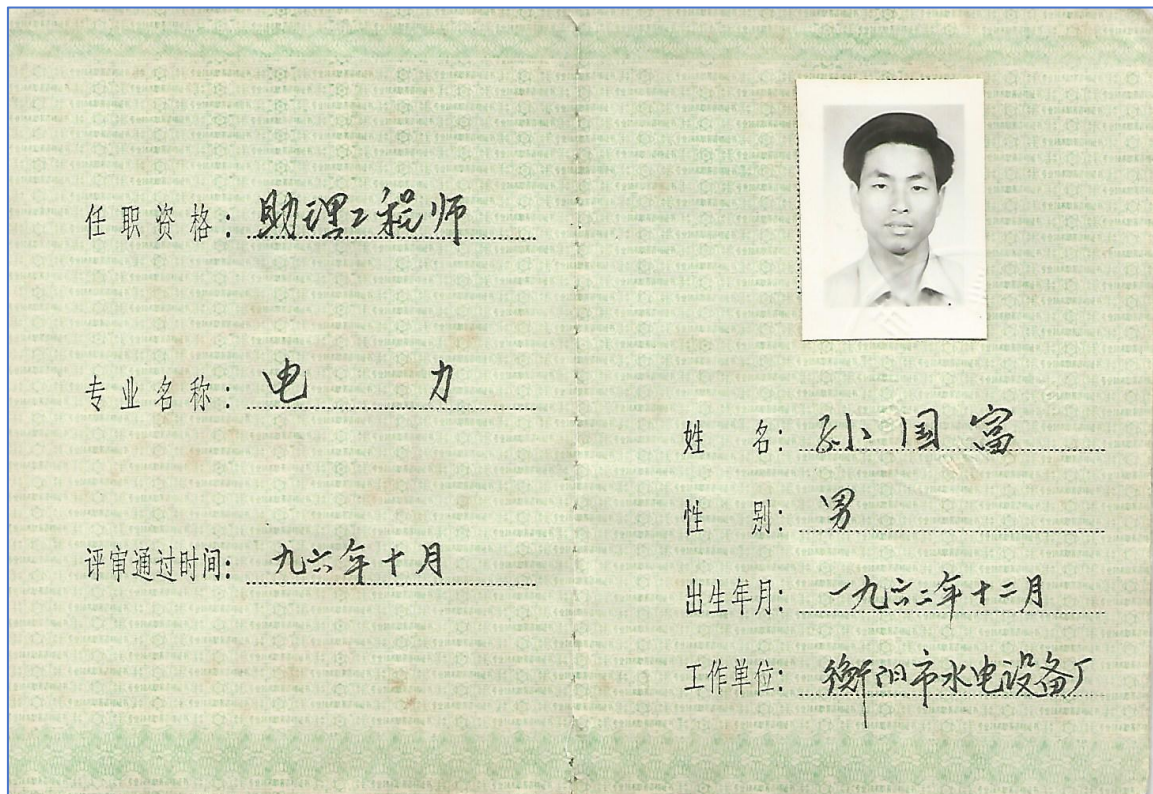 任职资格：助理工程师
专业名称：电 力
评审通过时间：九六年十月
姓 名：孙国富
性 别：男
出生年月：一九六二年十二月
工作单位：衡阳市水电设备厂